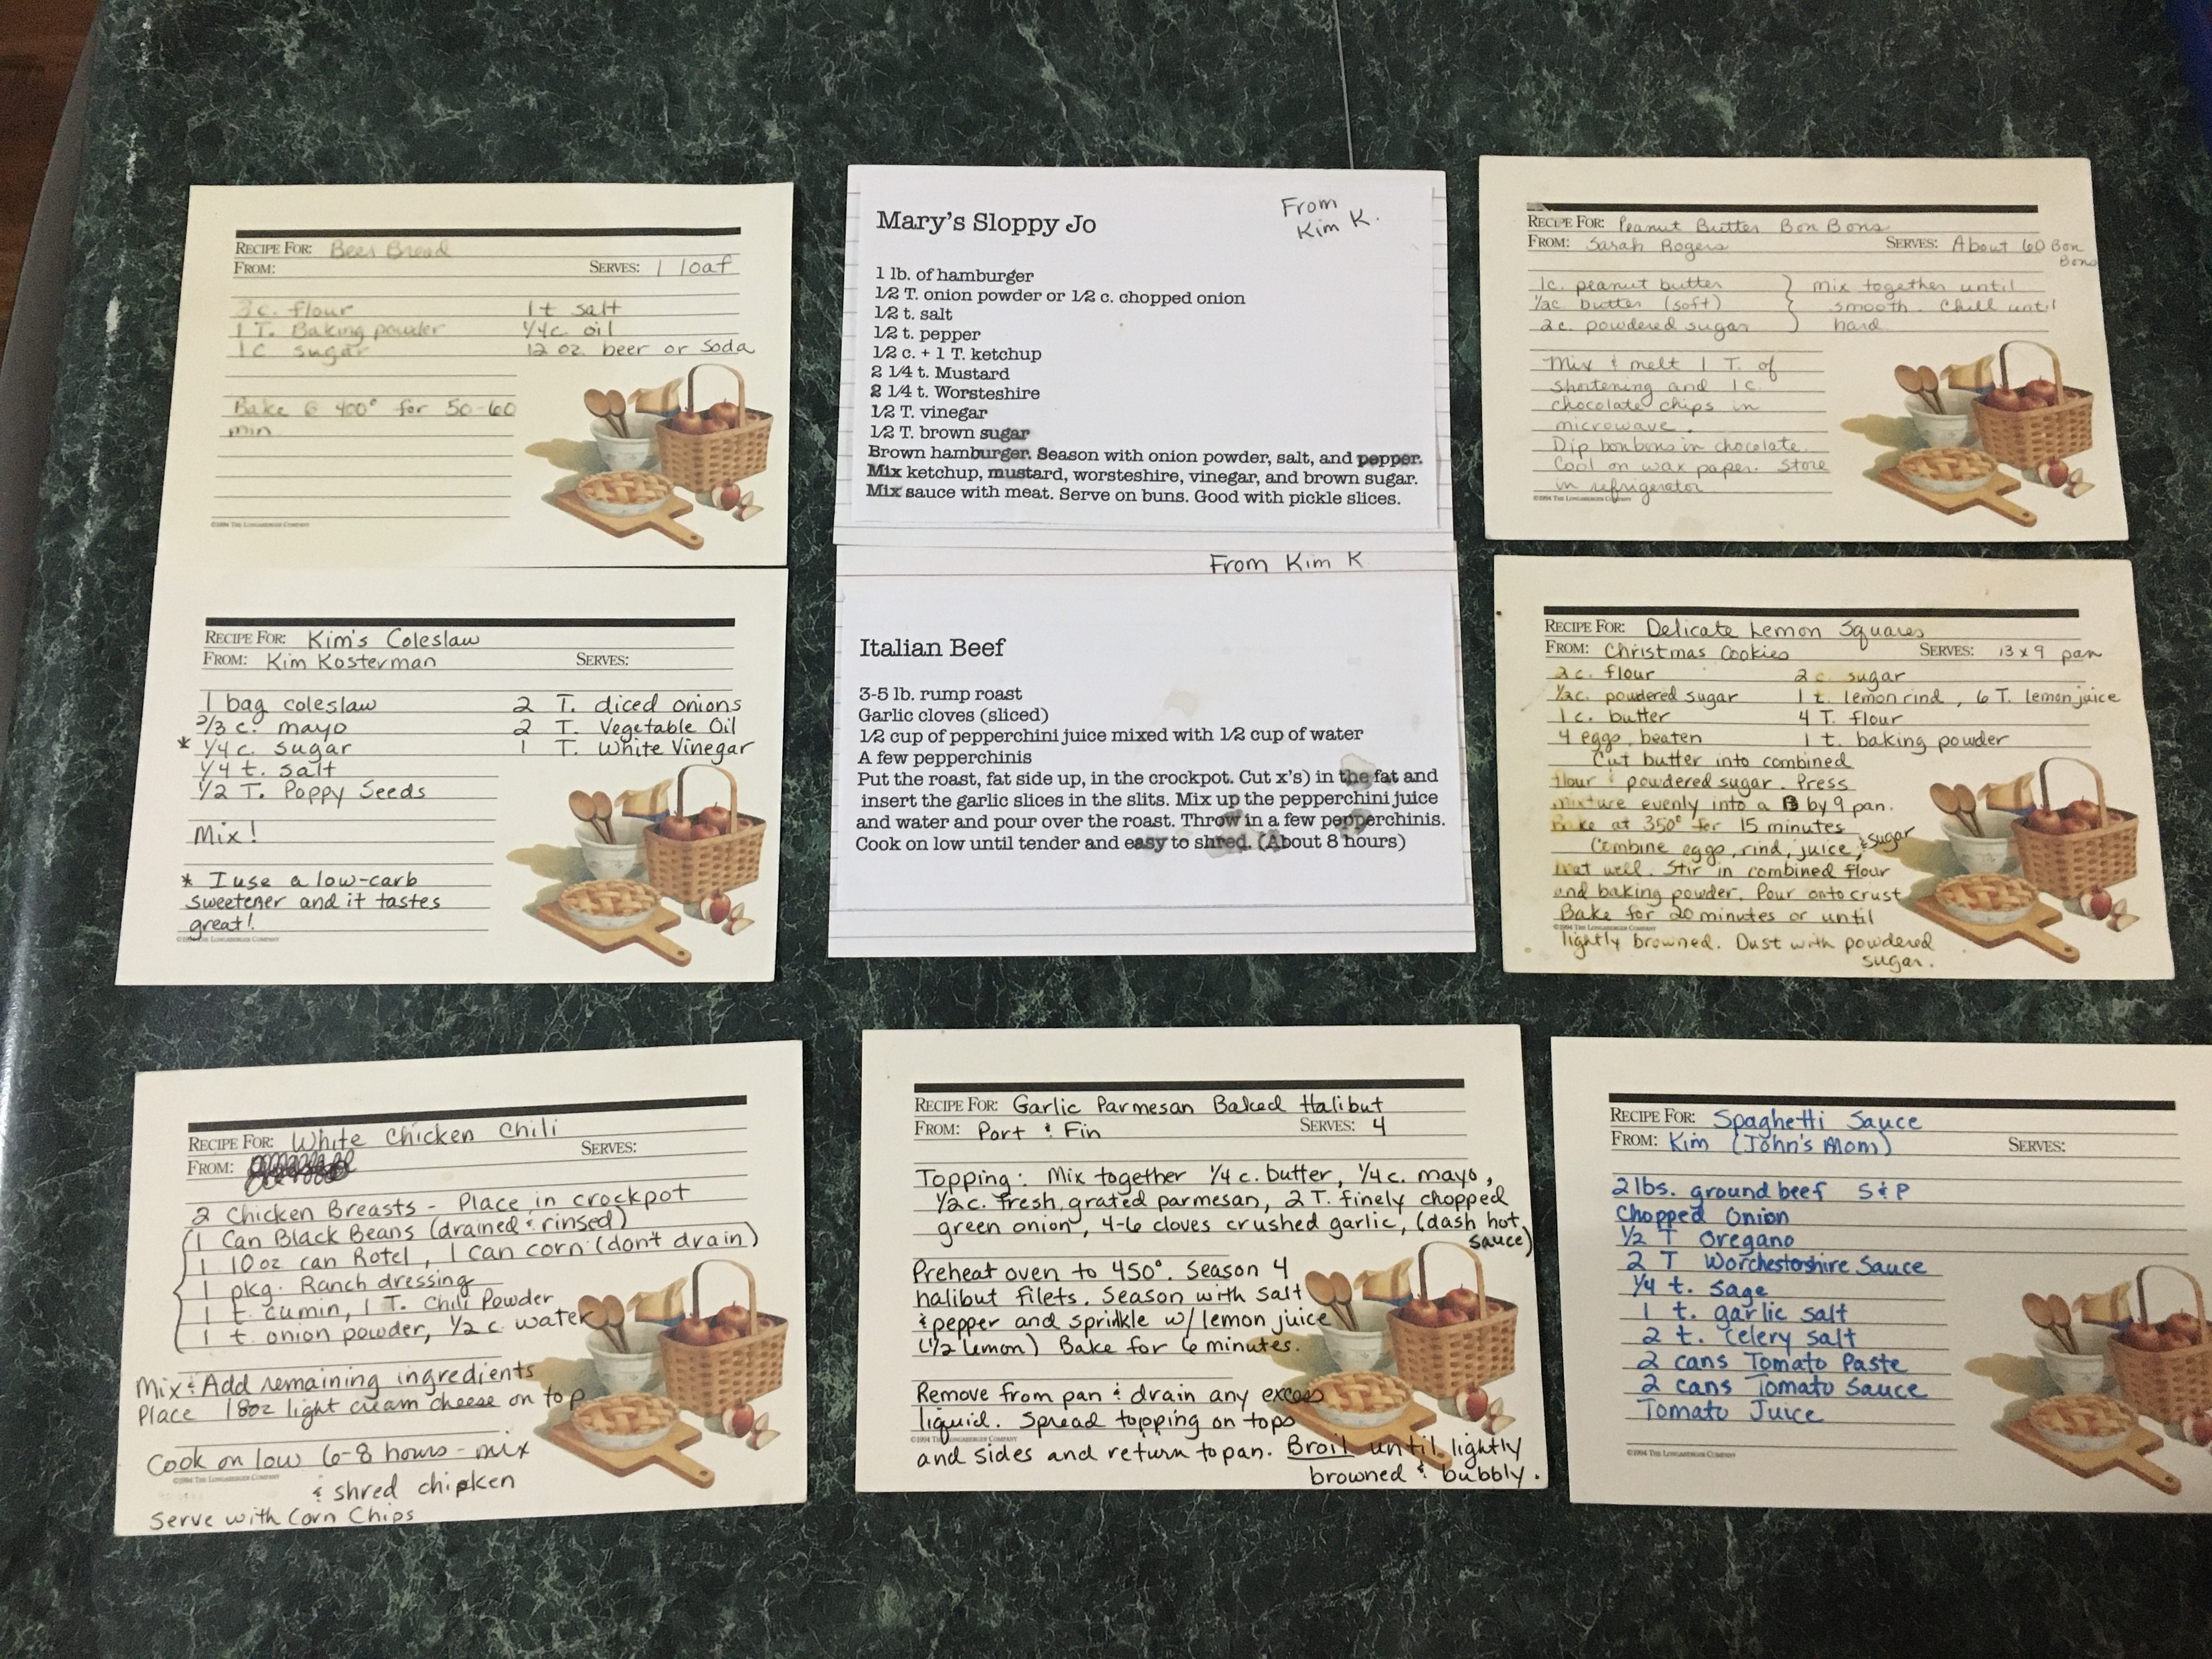 RECIPE FOR: Beer Bread
FROM: SERVES: 1 loaf
3 c. flour 1 t salt
1 T. Baking powder 1/4 c. oil
1 c sugar 12 oz. beer or soda
Bake @ 400° for 50-60
min.
©1994 THE LONGABERGER COMPANY
Mary's Sloppy Jo
From
Kim K.
1 lb. of hamburger
1/2 T. onion powder or 1/2 c. chopped onion
1/2 t. salt
1/2 t. pepper
1/2 c. + 1 T. ketchup
2 1/4 t. Mustard
2 1/4 t. Worsteshire
1/2 T. vinegar
1/2 T. brown sugar
Brown hamburger. Season with onion powder, salt, and pepper.
Mix ketchup, mustard, worsteshire, vinegar, and brown sugar.
Mix sauce with meat. Serve on buns. Good with pickle slices.
RECIPE FOR: Peanut Butter Bon Bons
FROM: Sarah Rogers SERVES: About 60 Bon
Bons
1c. peanut butter } mix together until
1/2c butter (soft) } smooth. Chill until
2c. powdered sugar } hard
Mix & melt 1 T. of
shortening and 1 c.
chocolate chips in
microwave.
Dip bonbons in chocolate.
Cool on wax paper. Store
in refrigerator
©1994 THE LONGABERGER COMPANY
RECIPE FOR: Kim's Coleslaw
FROM: Kim Kosterman SERVES:
1 bag coleslaw 2 T. diced onions
2/3 c. mayo 2 T. Vegetable Oil
* 1/4 c. sugar 1 T. White Vinegar
1/4 t. salt
1/2 T. Poppy Seeds
Mix!
* I use a low-carb
sweetener and it tastes
great!
©1994 THE LONGABERGER COMPANY
From Kim K
Italian Beef
3-5 lb. rump roast
Garlic cloves (sliced)
1/2 cup of pepperchini juice mixed with 1/2 cup of water
A few pepperchinis
Put the roast, fat side up, in the crockpot. Cut x's) in the fat and
insert the garlic slices in the slits. Mix up the pepperchini juice
and water and pour over the roast. Throw in a few pepperchinis.
Cook on low until tender and easy to shred. (About 8 hours)
RECIPE FOR: Delicate Lemon Squares
FROM: Christmas Cookies SERVES: 13 x 9 pan
2 c. flour 2 c. sugar
1/2c. powdered sugar 1 t. lemon rind, 6 T. lemon juice
1 c. butter 4 T. flour
4 eggs, beaten 1 t. baking powder
Cut butter into combined
flour & powdered sugar. Press
mixture evenly into a 13 by 9 pan.
Bake at 350° for 15 minutes
Combine eggs, rind, juice, & sugar
Beat well. Stir in combined flour
and baking powder. Pour onto crust
Bake for 20 minutes or until
©1994 THE LONGABERGER COMPANY
lightly browned. Dust with powdered
sugar.
RECIPE FOR: White Chicken Chili
FROM: SERVES:
2 Chicken Breasts - Place in crockpot
1 Can Black Beans (drained & rinsed)
1 10oz can Rotel, 1 can corn (don't drain)
1 pkg. Ranch dressing
1 t. cumin, 1 T. Chili Powder
1 t. onion powder, 1/2 c. water
Mix & Add remaining ingredients
Place 1 8oz light cream cheese on top
Cook on low 6-8 hours - mix
©1994 THE LONGABERGER COMPANY
& shred chicken
Serve with Corn Chips
RECIPE FOR: Garlic Parmesan Baked Halibut
FROM: Port & Fin SERVES: 4
Topping: Mix together 1/4 c. butter, 1/4 c. mayo,
1/2 c. fresh grated parmesan, 2 T. finely chopped
green onion, 4-6 cloves crushed garlic, (dash hot
sauce)
Preheat oven to 450°. Season 4
halibut filets. Season with salt
& pepper and sprinkle w/ lemon juice
(1/2 lemon) Bake for 6 minutes.
Remove from pan & drain any excess
liquid. Spread topping on tops
©1994 THE LONGABERGER COMPANY
and sides and return to pan. Broil until lightly
browned & bubbly.
RECIPE FOR: Spaghetti Sauce
FROM: Kim (John's Mom) SERVES:
2 lbs. ground beef S & P
Chopped Onion
1/2 T Oregano
2 T Worchestorshire Sauce
1/4 t. sage
1 t. garlic salt
2 t. celery salt
2 cans Tomato Paste
2 cans Tomato Sauce
Tomato Juice
©1994 THE LONGABERGER COMPANY